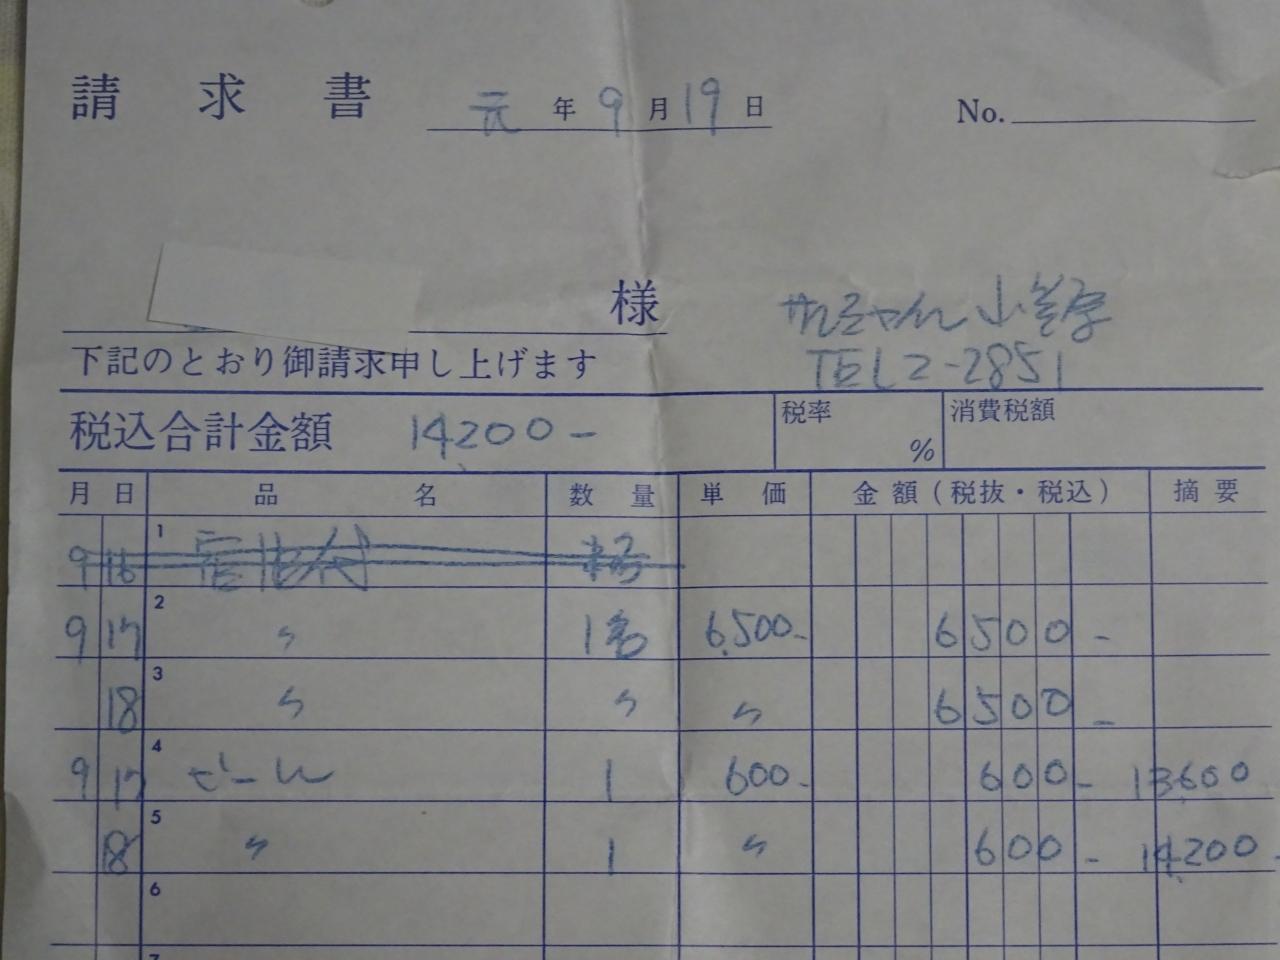 請求書 元年9月19日 No.
様
サンちゃん 小笠原
下記のとおり御請求申し上げます TEL2-2851
税込合計金額 14200- 税率 % 消費税額
月 日 品名 数量 単価 金額(税抜・税込) 摘要
9 16 1 宿泊代
9 17 2 〃 1名 6,500- 6500-
18 3 〃 〃 〃 6500-
9 17 4 ビール 1 600- 600- 13,600
18 5 〃 1 〃 600- 14,200-
6
7